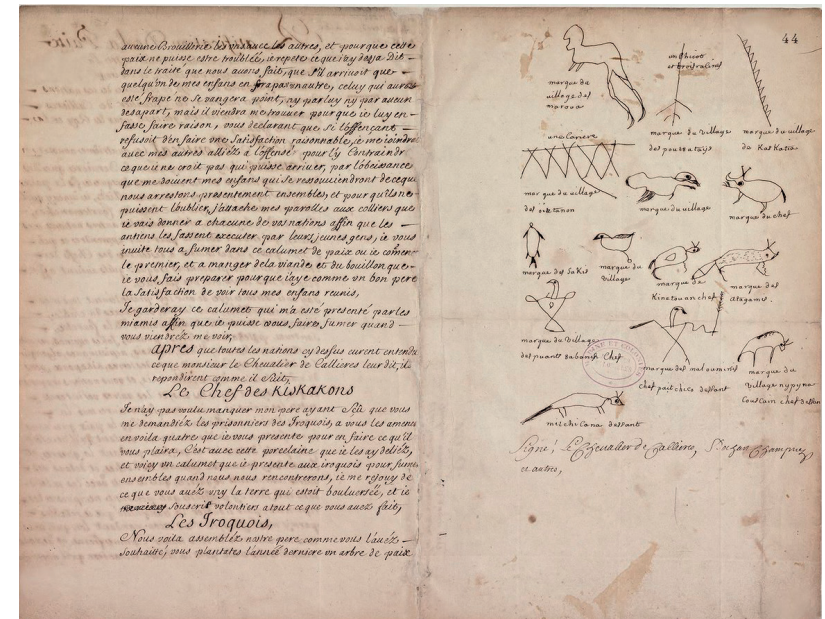 aucune Brouillerie les uns avec les autres, et pour que cette
paix ne puisse estre troublée, je repete ce que j'ay desja Dit
dans le traité que nous avons fait, que s'il arrivoit que
quelqu'un de mes enfans en frapas un autre, celuy qui aura
esté frapé ne se vangera point, ny par luy ny par aucun
de sa part, mais il viendra me trouver pour que je luy en
fasse faire raison, vous declarant que si l'offençant
refusoit d'en faire une satisfaction raisonnable, je me joindrai
avec mes autres alliéz a l'offensé pour l'y Contraindre
ce que je ne croit pas qui puisse arriver, par l'obeissance
que me doivent mes enfans qui se ressouviendront de ce que
nous arrestons presentement ensembles, et pour qu'ils ne
puissent l'oublier, j'attache mes parolles aux colliers que
je vais donner a chacune de vos nations affin que les
antiens les fassent executer par leurs jeunes gens, je vous
invite tous a fumer dans ce calumet de paix ou je comence
le premier, et a manger de la viande et du bouillon que
je vous fais preparer pour que j'aye comme un bon pere
la satisfaction de voir tous mes enfans reunis,
Je garderay ce calumet qui m'a esté presenté par les
miamis affin que je puisse vous faire fumer quand
vous viendréz me voir,
apres que toutes les nations cy desfus eurent entendu
ce que monsieur le Chevalier de Callieres leur dit, ils
repondirent comme il suit,
Le Chef des Kiskakons
Je n'ay pas voulu manquer mon pere ayant Sçû que vous
me demandiéz les prisonniers des Iroquois, a vous les amener
en voila quatres que je vous presente pour en faire ce qu'il
vous plaira, C'est avec cette porcelaine que je les ay deliéz,
et voicy un calumet que je presente aux iroquois pour fumer
ensembles quand nous nous rencontrerons, je me rejouy de
ce que vous avéz uny la terre qui estoit bouluersée, et je
souscrit volontiers a tout ce que vous avez fait,
Les Iroquois,
Nous voila assembléz nostre pere comme vous l'avéz
souhaitté, vous plantates l'année derniere un arbre de paix
44
marque du
village des
un chicot
et trois racines
marque du village
des pouteatays
marque du village
du Kaskakia
une
marque du village
des
marque du village
marque du chef
marque des Sakis
marque du
village
marque de
Kinetouan chef
marque des
atagamis.
marque du village
des puants Chef
marque des malouminis
Chef
marque du
village nypyna
chef
Signé, Le Chevalier de Callieres, Bochart Champigny
et autres,